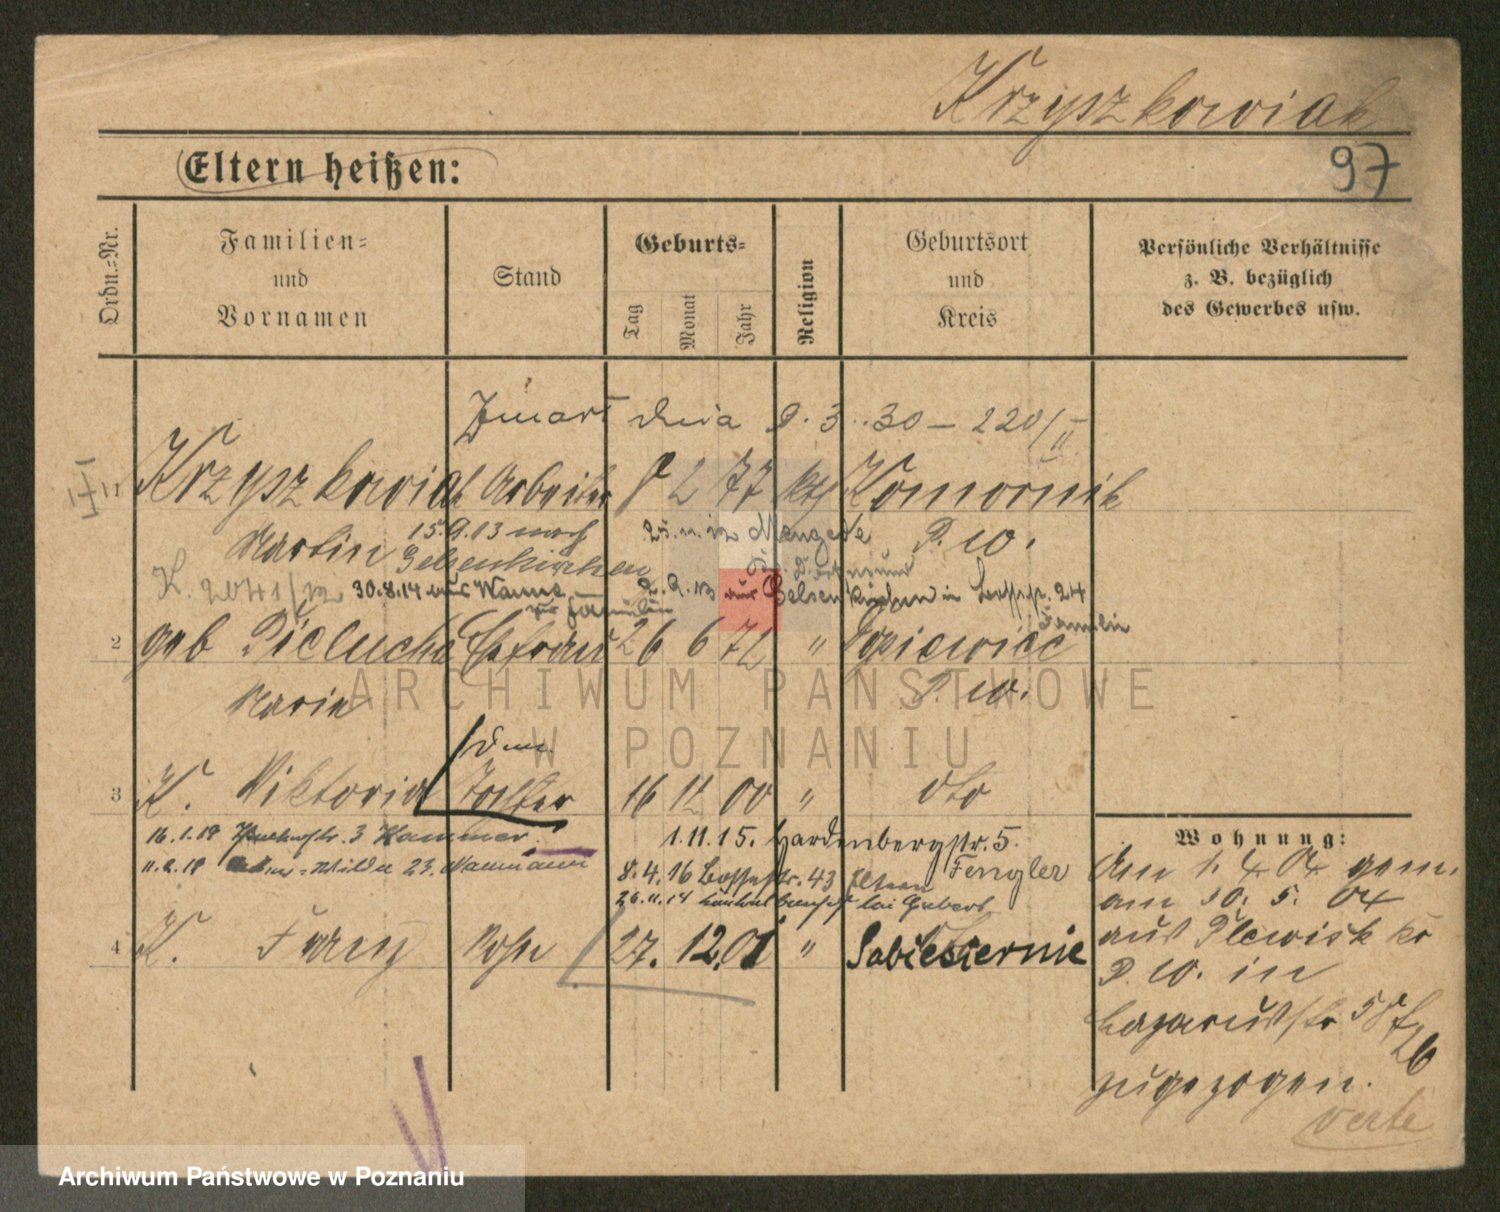 Krzyszkowiak
97
Eltern heißen:
Ordn.-Nr.
Familien-
und
Vornamen
Stand
Geburts-
Tag
Monat
Jahr
Religion
Geburtsort
und
Kreis
Persönliche Verhältnisse
z. B. bezüglich
des Gewerbes usw.
Zmarł dnia 9.3.30 – 220/II
1 Krzyszkowiak Arbeiter 8 2 77 kth Komornik
Martin 15.9.13 nach 25.11.12 Mengede P. W.
Gelsenkirchen
K. 2041/12 30.8.14 aus Wanne 2.9.13 aus Gelsenkirchen in 24
zur Familie Familie
2 geb Pielucha Ehefrau 26 6 72 " Dopiewiec
Maria P. W.
3 K. Viktoria Tochter 16 11 00 " dto
16.1.19 3 Hammer. 1.11.15. Hardenbergstr. 5.
11.2.19 23. Naumann 8.4.16 43 Eltern Fengler
26.11.17 bei
4 K. Franz Sohn 27. 12. 01 " Sabiesiernie
Wohnung:
Am 1. 4 04 gem.
am 10. 5. 04
aus Plewisk Kr
P. W. in
Lazarusstr 58
zugezogen.
verte
ARCHIWUM PAŃSTWOWE
W POZNANIU
Archiwum Państwowe w Poznaniu